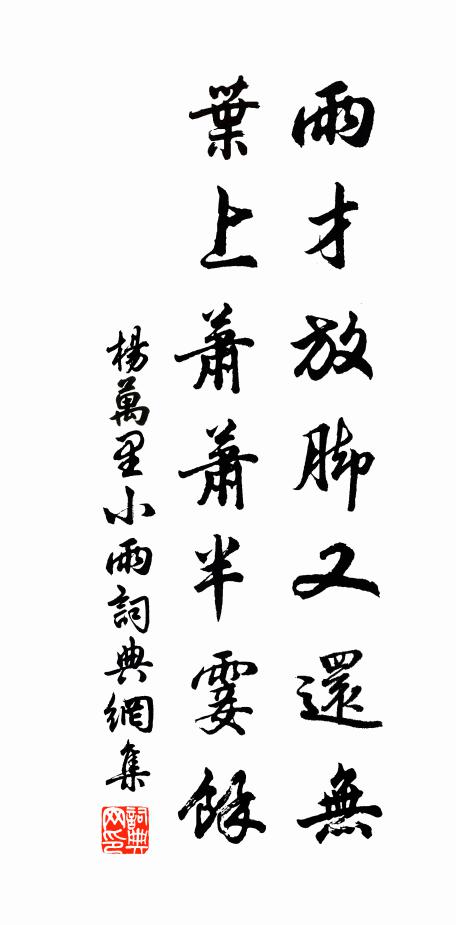 雨才放脚又還無
葉上蕭蕭半霎餘
楊萬里小雨詞典網集
詞典
网印